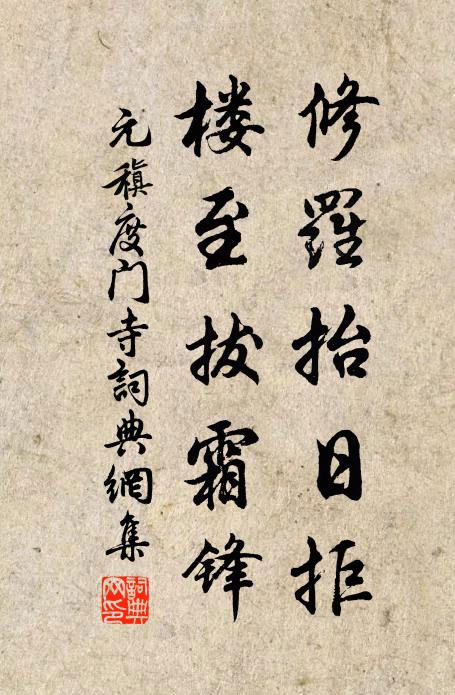 修羅抬日拒
楼至拔霜锋
元稹度门寺詞典網集
詞典网印